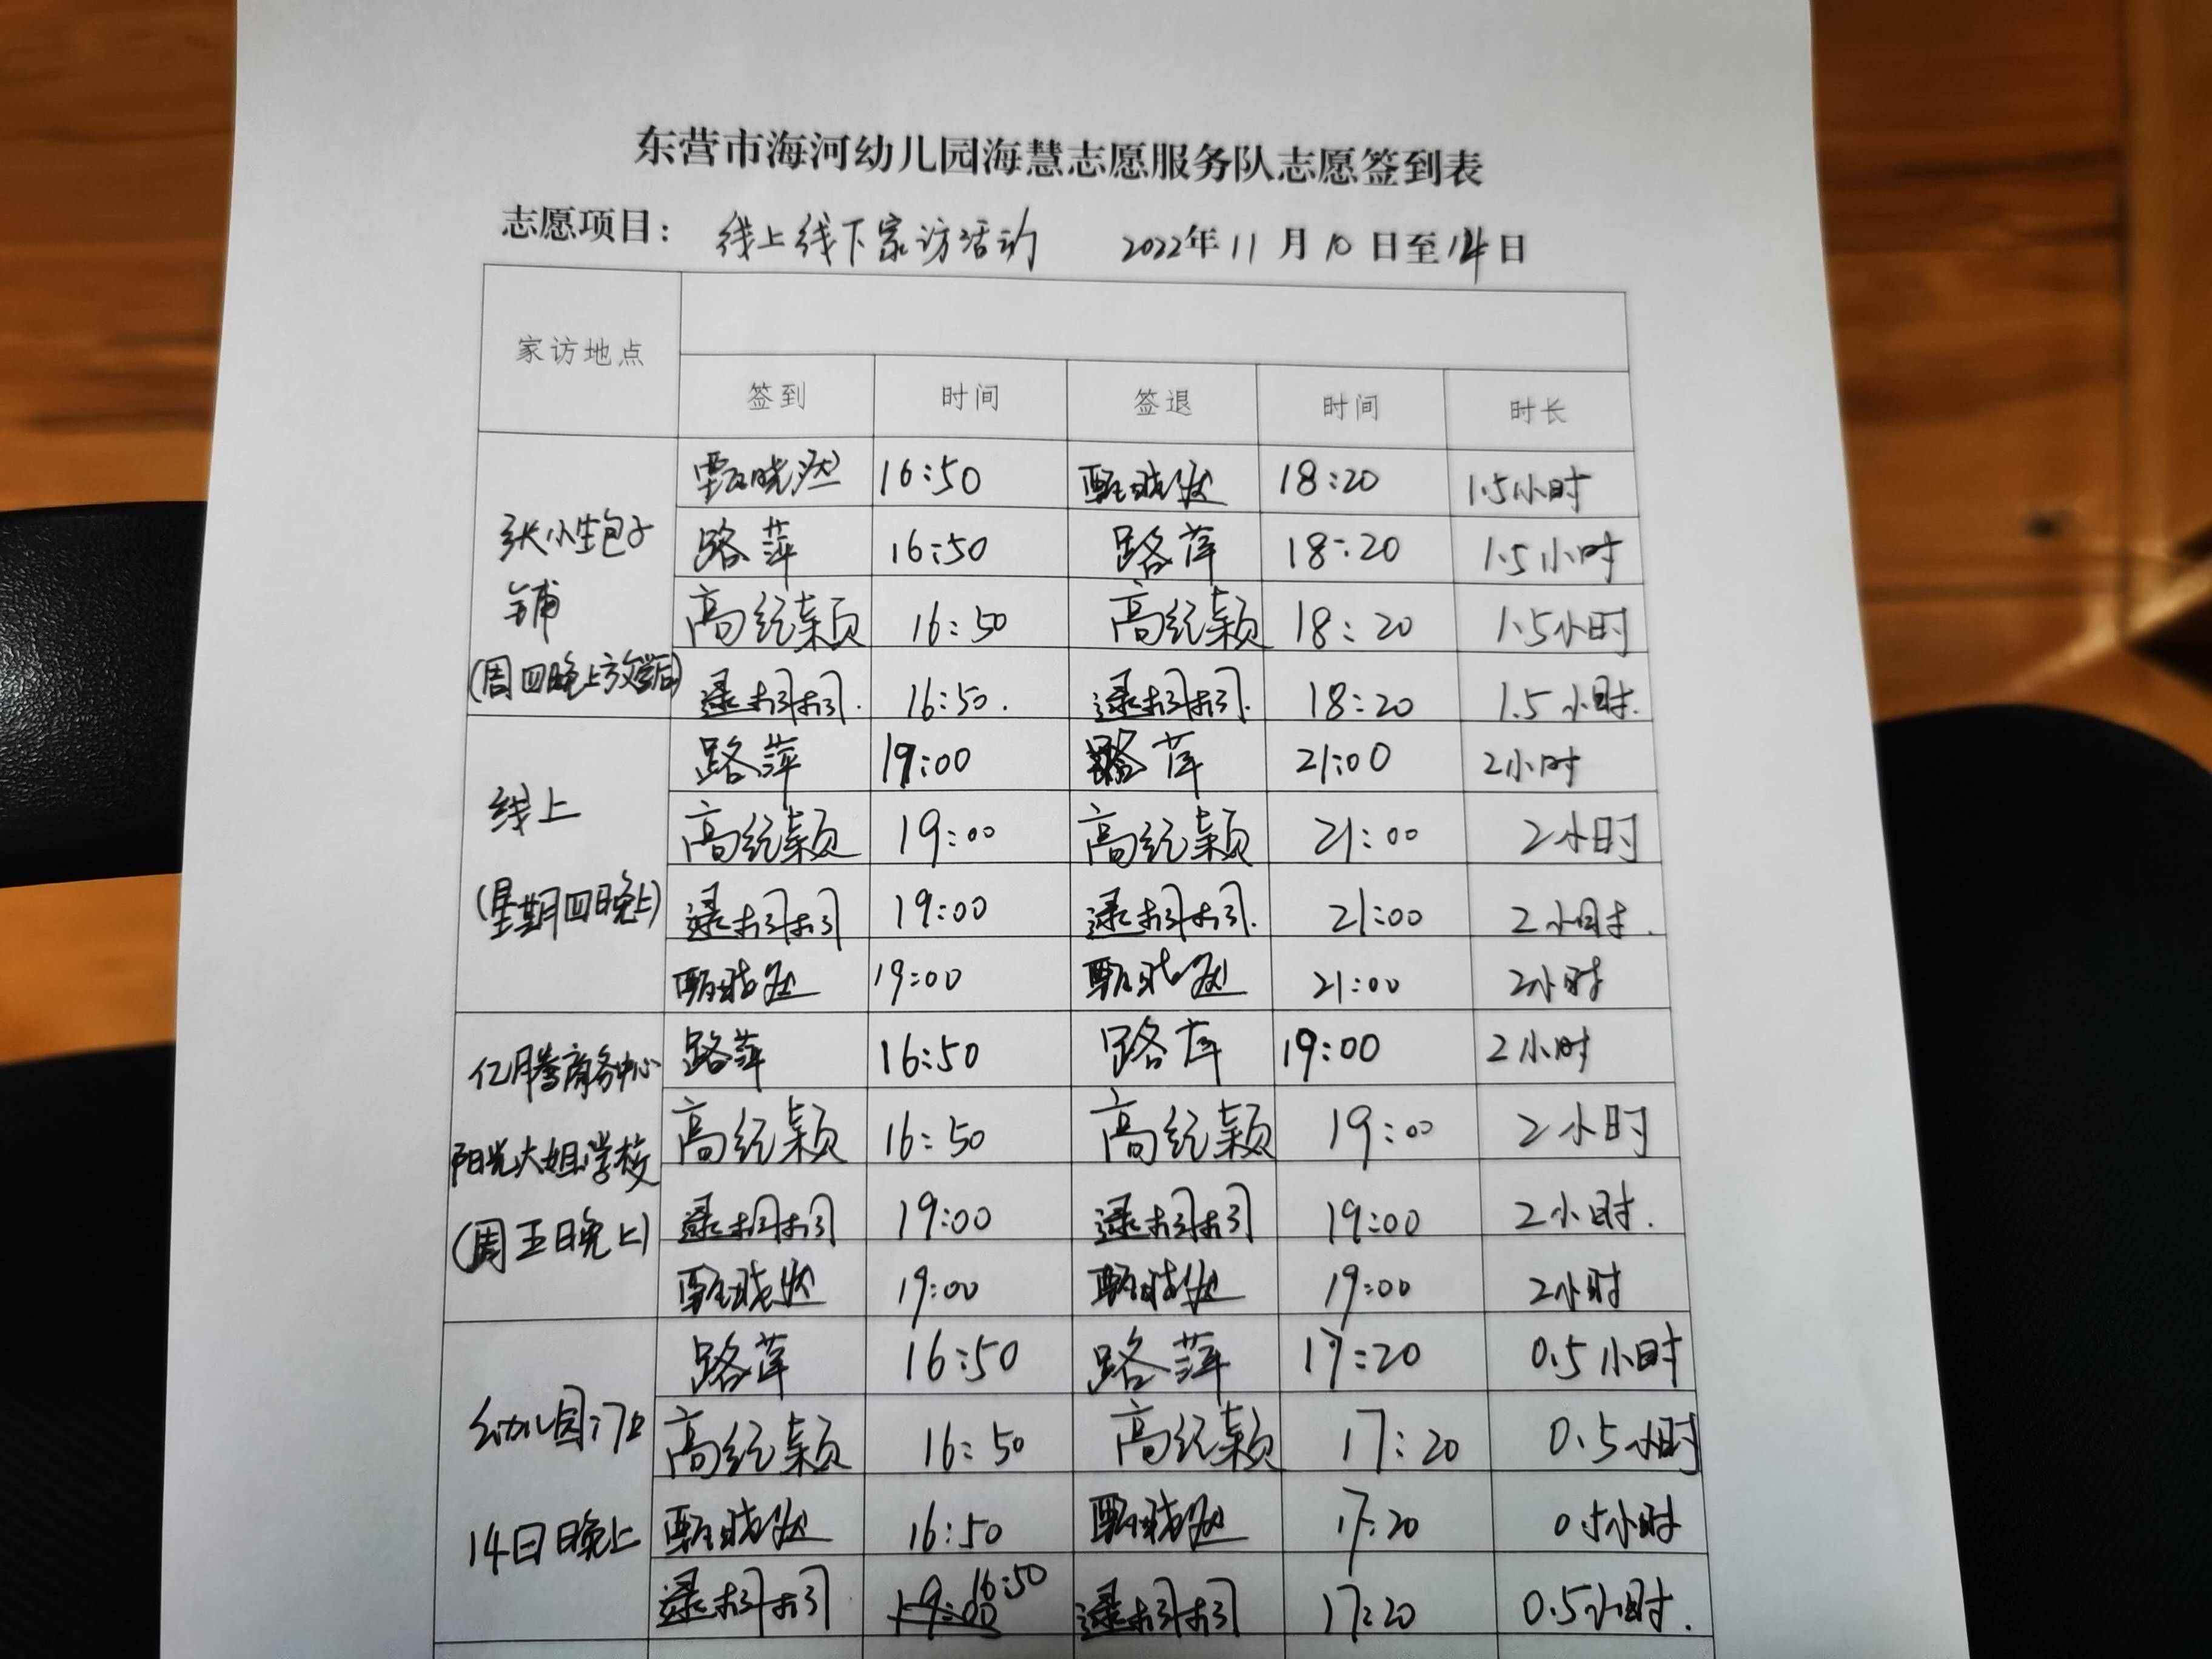 东营市海河幼儿园海慧志愿服务队志愿签到表
志愿项目： 线上线下家访活动 2022年11月10日至14日
家访地点
签到 时间 签退 时间 时长
张小生包子
铺
(周四晚上放学后)
甄晓燃 16:50 甄晓燃 18:20 1.5小时
路萍 16:50 路萍 18:20 1.5小时
高纪颖 16:50 高纪颖 18:20 1.5小时
逯栩栩. 16:50. 逯栩栩. 18:20 1.5小时.
线上
(星期四晚上)
路萍 19:00 路萍 21:00 2小时
高纪颖 19:00 高纪颖 21:00 2小时
逯栩栩 19:00 逯栩栩. 21:00 2小时.
甄晓燃 19:00 甄晓燃 21:00 2小时
亿腾商务中心
阳光大姐学校
(周五晚上)
路萍 16:50 路萍 19:00 2小时
高纪颖 16:50 高纪颖 19:00 2小时
逯栩栩 19:00 逯栩栩 19:00 2小时.
甄晓燃 19:00 甄晓燃 19:00 2小时
幼儿园门口
14日晚上
路萍 16:50 路萍 17:20 0.5小时
高纪颖 16:50 高纪颖 17:20 0.5小时
甄晓燃 16:50 甄晓燃 17:20 0.5小时
逯栩栩 19:00 16:50 逯栩栩 17:20 0.5小时.